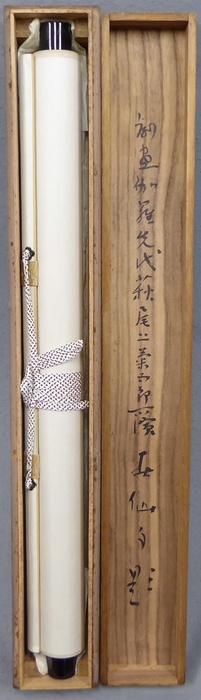 劇画伽羅先代萩尾上菊五郎 春仙自題